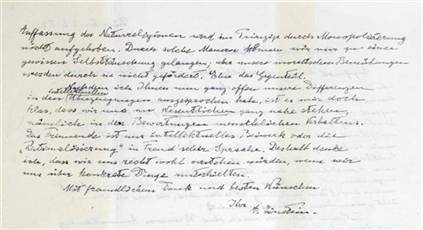 Auffassung der Naturreligionen wird im Prinzip durch Monopolisierung
nicht aufgehoben. Durch solche Mauern können wir nur zu einer
gewissen Selbsttäuschung gelangen, aber unsere moralischen Bemühungen
werden durch sie nicht gefördert. Eher das Gegenteil.
Nachdem ich Ihnen nun ganz offen unsere Differenzen
intellektuellen
in den Überzeugungen ausgesprochen habe, ist es mir doch
klar, dass wir uns im Wesentlichen ganz nahe stehen,
nämlich in den Bewertungen menschlichen Verhaltens.
Das Trennende ist nur intellektuelles Beiwerk oder die
"Rationalisierung" in Freud'scher Sprache. Deshalb denke
ich, dass wir uns recht wohl verstehen würden, wenn wir
uns über konkrete Dinge unterhielten.
Mit freundlichem Dank und besten Wünschen
Ihr A. Einstein.